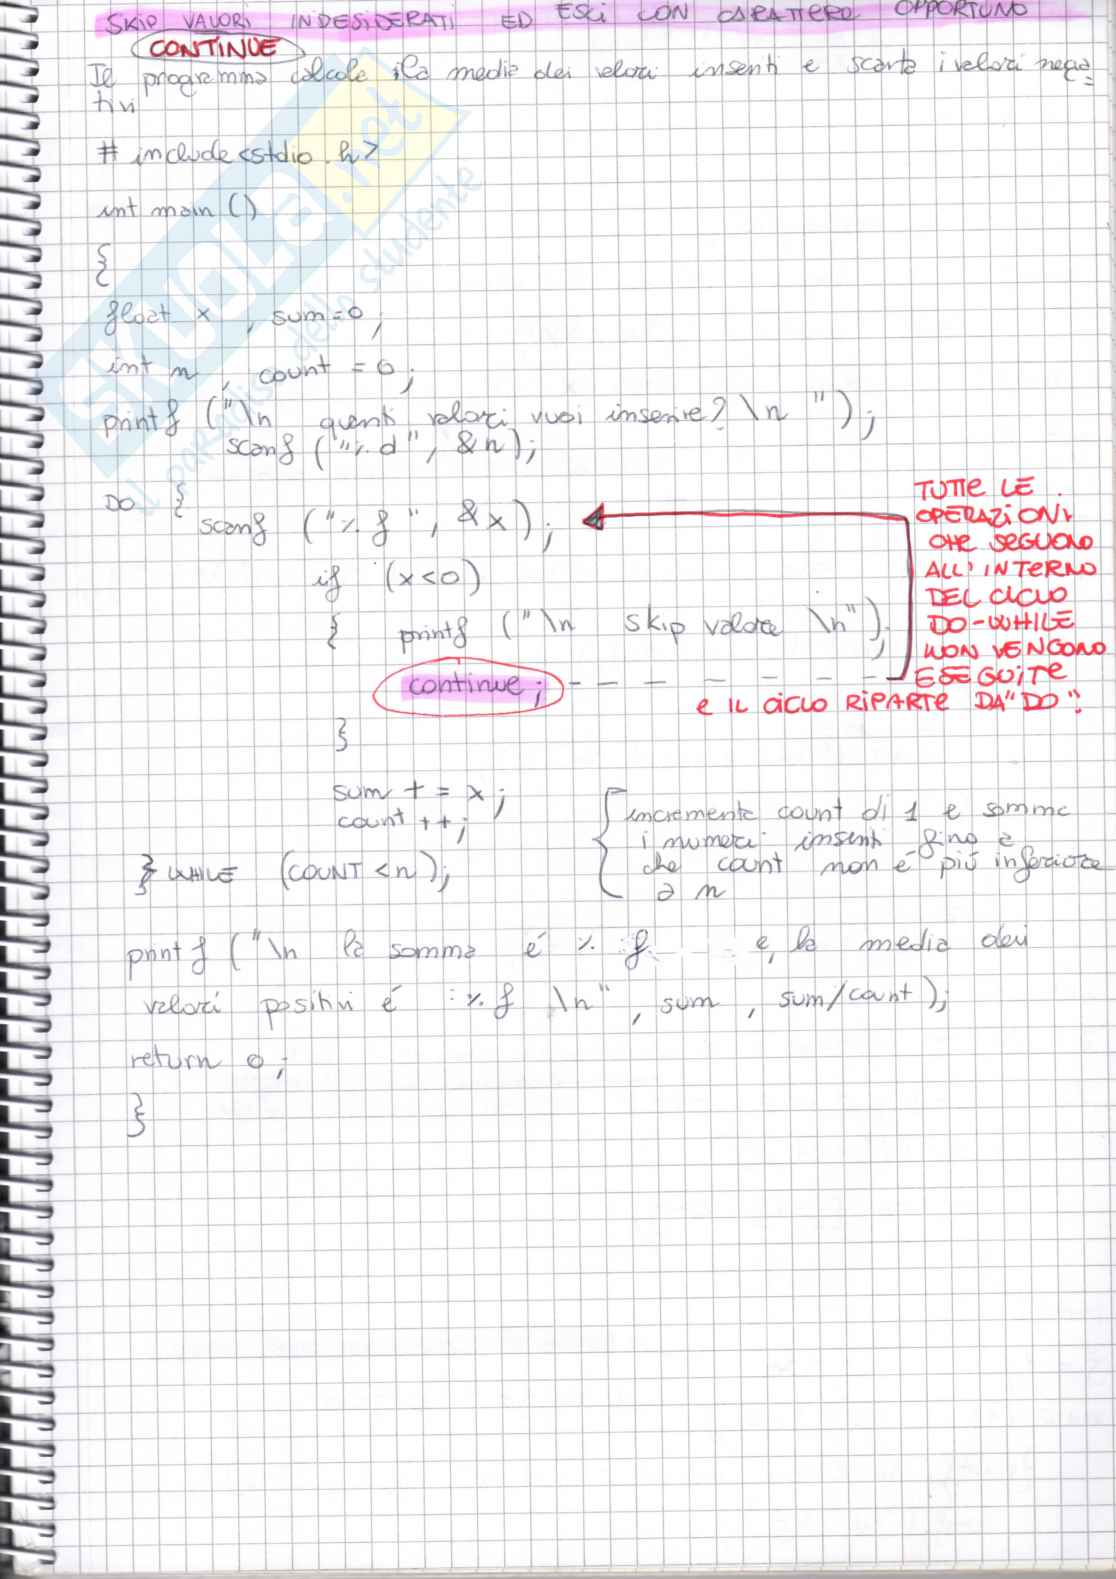 SKIP VALORI INDESIDERATI ED ESCI CON CARATTERE OPPORTUNO
CONTINUE
Il programma calcola la media dei valori inseriti e scarta i valori nega=
tivi
# include <stdio.h>
int main ()
{
float x, sum=0;
int n, count = 0;
printf ("\n quanti valori vuoi inserire? \n ");
scanf ("%d", &n);
DO {
scanf ("%f", &x);
if (x<0)
{ printf ("\n skip valore \n");
continue;
}
TUTTE LE
OPERAZIONI
CHE SEGUONO
ALL'INTERNO
DEL CICLO
DO-WHILE
NON VENGONO
ESEGUITE
E IL CICLO RIPARTE DA "DO".
sum += x;
count ++;
} WHILE (COUNT < n);
incrementa count di 1 e somma
i numeri inseriti fino a
che count non é più inferiore
a n
printf ("\n la somma é %f e, la media dei
valori positivi é :%f \n", sum, sum/count);
return 0;
}
SKUOLA.net
il paradiso dello studente